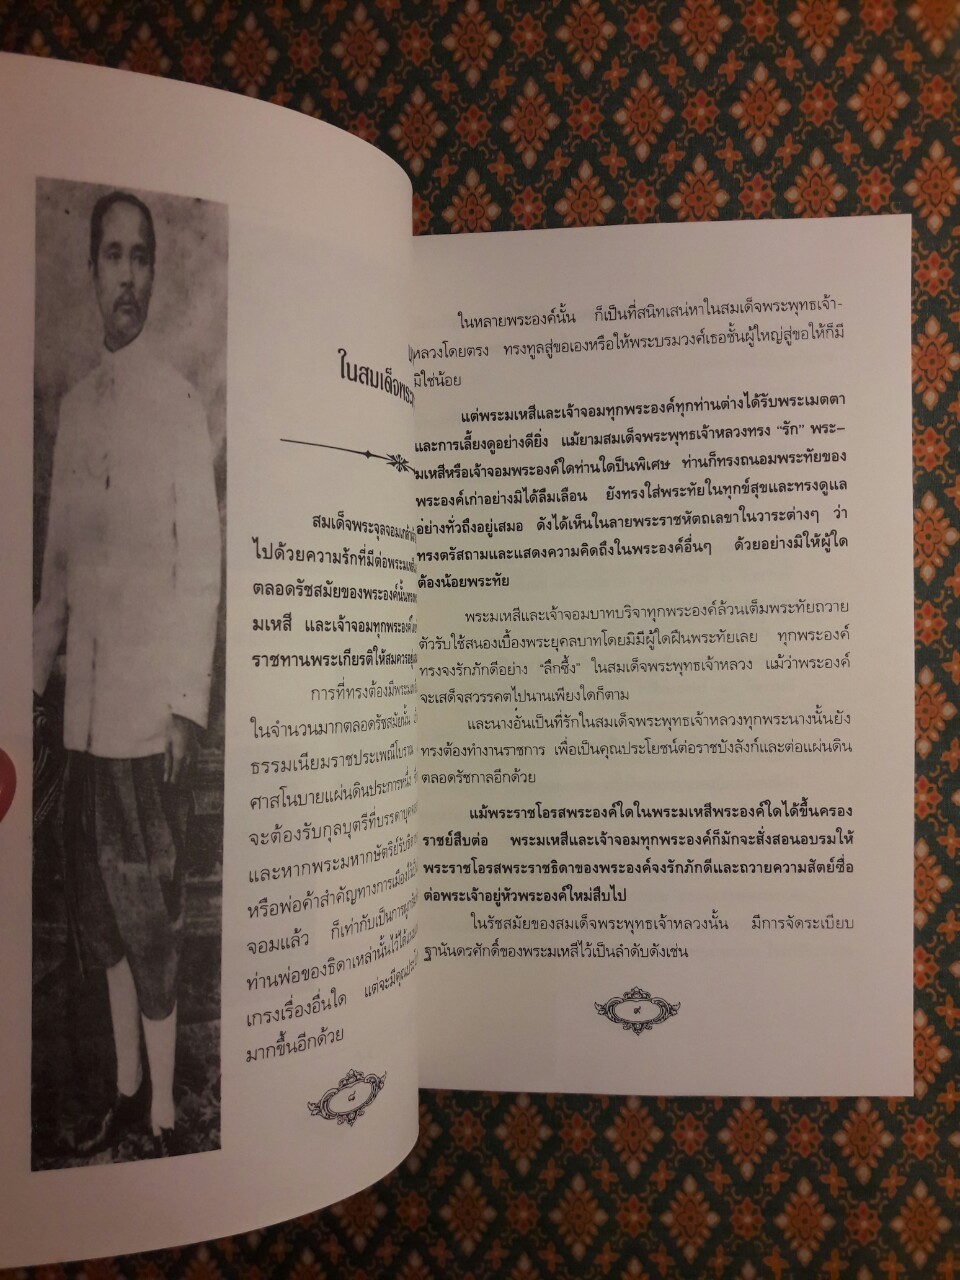 ในสมเด็จพระ
สมเด็จพระจุลจอมเกล้า
ไปด้วยความรักที่มีต่อพระมเหสี
ตลอดรัชสมัยของพระองค์นั้น
มเหสี และเจ้าจอมทุกพระองค์
ราชทานพระเกียรติให้สมควร
การที่ทรงต้องมีพระมเหสี
ในจำนวนมากตลอดรัชสมัยนั้น
ธรรมเนียมราชประเพณีโบราณ
ศาสโนบายแผ่นดินประการหนึ่ง
จะต้องรับกุลบุตรีที่บรรดา
และหากพระมหากษัตริย์รับธิดา
หรือพ่อค้าสำคัญทางการเมือง
จอมแล้ว ก็เท่ากับเป็นการผูก
ท่านพ่อของธิดาเหล่านั้นไว้ได้
เกรงเรื่องอื่นใด แต่จะมีคุณประ
มากขึ้นอีกด้วย
๘
ในหลายพระองค์นั้น ก็เป็นที่สนิทเสน่หาในสมเด็จพระพุทธเจ้า-
หลวงโดยตรง ทรงทูลสู่ขอเองหรือให้พระบรมวงศ์เธอชั้นผู้ใหญ่สู่ขอให้ก็มี
มิใช่น้อย
แต่พระมเหสีและเจ้าจอมทุกพระองค์ทุกท่านต่างได้รับพระเมตตา
และการเลี้ยงดูอย่างดียิ่ง แม้ยามสมเด็จพระพุทธเจ้าหลวงทรง “รัก” พระ-
มเหสีหรือเจ้าจอมพระองค์ใดท่านใดเป็นพิเศษ ท่านก็ทรงถนอมพระทัยของ
พระองค์เก่าอย่างมิได้ลืมเลือน ยังทรงใส่พระทัยในทุกข์สุขและทรงดูแล
อย่างทั่วถึงอยู่เสมอ ดังได้เห็นในลายพระราชหัตถเลขาในวาระต่างๆ ว่า
ทรงตรัสถามและแสดงความคิดถึงในพระองค์อื่นๆ ด้วยอย่างมิให้ผู้ใด
ต้องน้อยพระทัย
พระมเหสีและเจ้าจอมบาทบริจาทุกพระองค์ล้วนเต็มพระทัยถวาย
ตัวรับใช้สนองเบื้องพระยุคลบาทโดยมิมีผู้ใดฝืนพระทัยเลย ทุกพระองค์
ทรงจงรักภักดีอย่าง “ลึกซึ้ง” ในสมเด็จพระพุทธเจ้าหลวง แม้ว่าพระองค์
จะเสด็จสวรรคตไปนานเพียงใดก็ตาม
และนางอันเป็นที่รักในสมเด็จพระพุทธเจ้าหลวงทุกพระนางนั้นยัง
ทรงต้องทำงานราชการ เพื่อเป็นคุณประโยชน์ต่อราชบังลังก์และต่อแผ่นดิน
ตลอดรัชกาลอีกด้วย
แม้พระราชโอรสพระองค์ใดในพระมเหสีพระองค์ใดได้ขึ้นครอง
ราชย์สืบต่อ พระมเหสีและเจ้าจอมทุกพระองค์ก็มักจะสั่งสอนอบรมให้
พระราชโอรสพระราชธิดาของพระองค์จงรักภักดีและถวายความสัตย์ซื่อ
ต่อพระเจ้าอยู่หัวพระองค์ใหม่สืบไป
ในรัชสมัยของสมเด็จพระพุทธเจ้าหลวงนั้น มีการจัดระเบียบ
ฐานันดรศักดิ์ของพระมเหสีไว้เป็นลำดับดังเช่น
๙